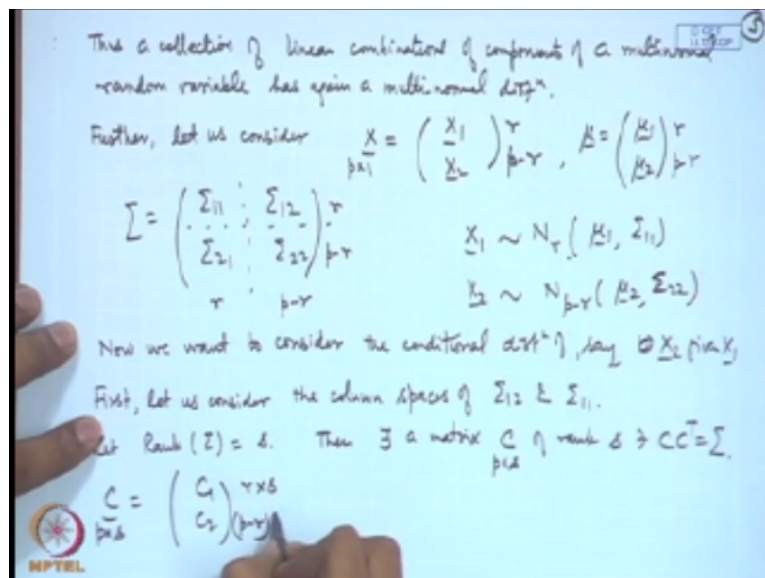 Thus a collection of linear combinations of components of a multinormal
random variable has again a multinormal distⁿ.
Further, let us consider X = ( X₁ X₂ ) r p-r , μ = ( μ₁ μ₂ ) r p-r
p×1
Σ = ( Σ₁₁ Σ₁₂ Σ₂₁ Σ₂₂ ) r p-r
r p-r
X₁ ~ N_r ( μ₁, Σ₁₁)
X₂ ~ N_{p-r} ( μ₂, Σ₂₂)
Now we want to consider the conditional distⁿ of, say X₂ given X₁
First, let us consider the column spaces of Σ₁₂ & Σ₁₁.
Let Rank (Σ) = s. Then ∃ a matrix C of rank s ∋ CCᵀ = Σ.
p×s
C = ( C₁ C₂ ) r×s (p-r)
p×s
NPTEL